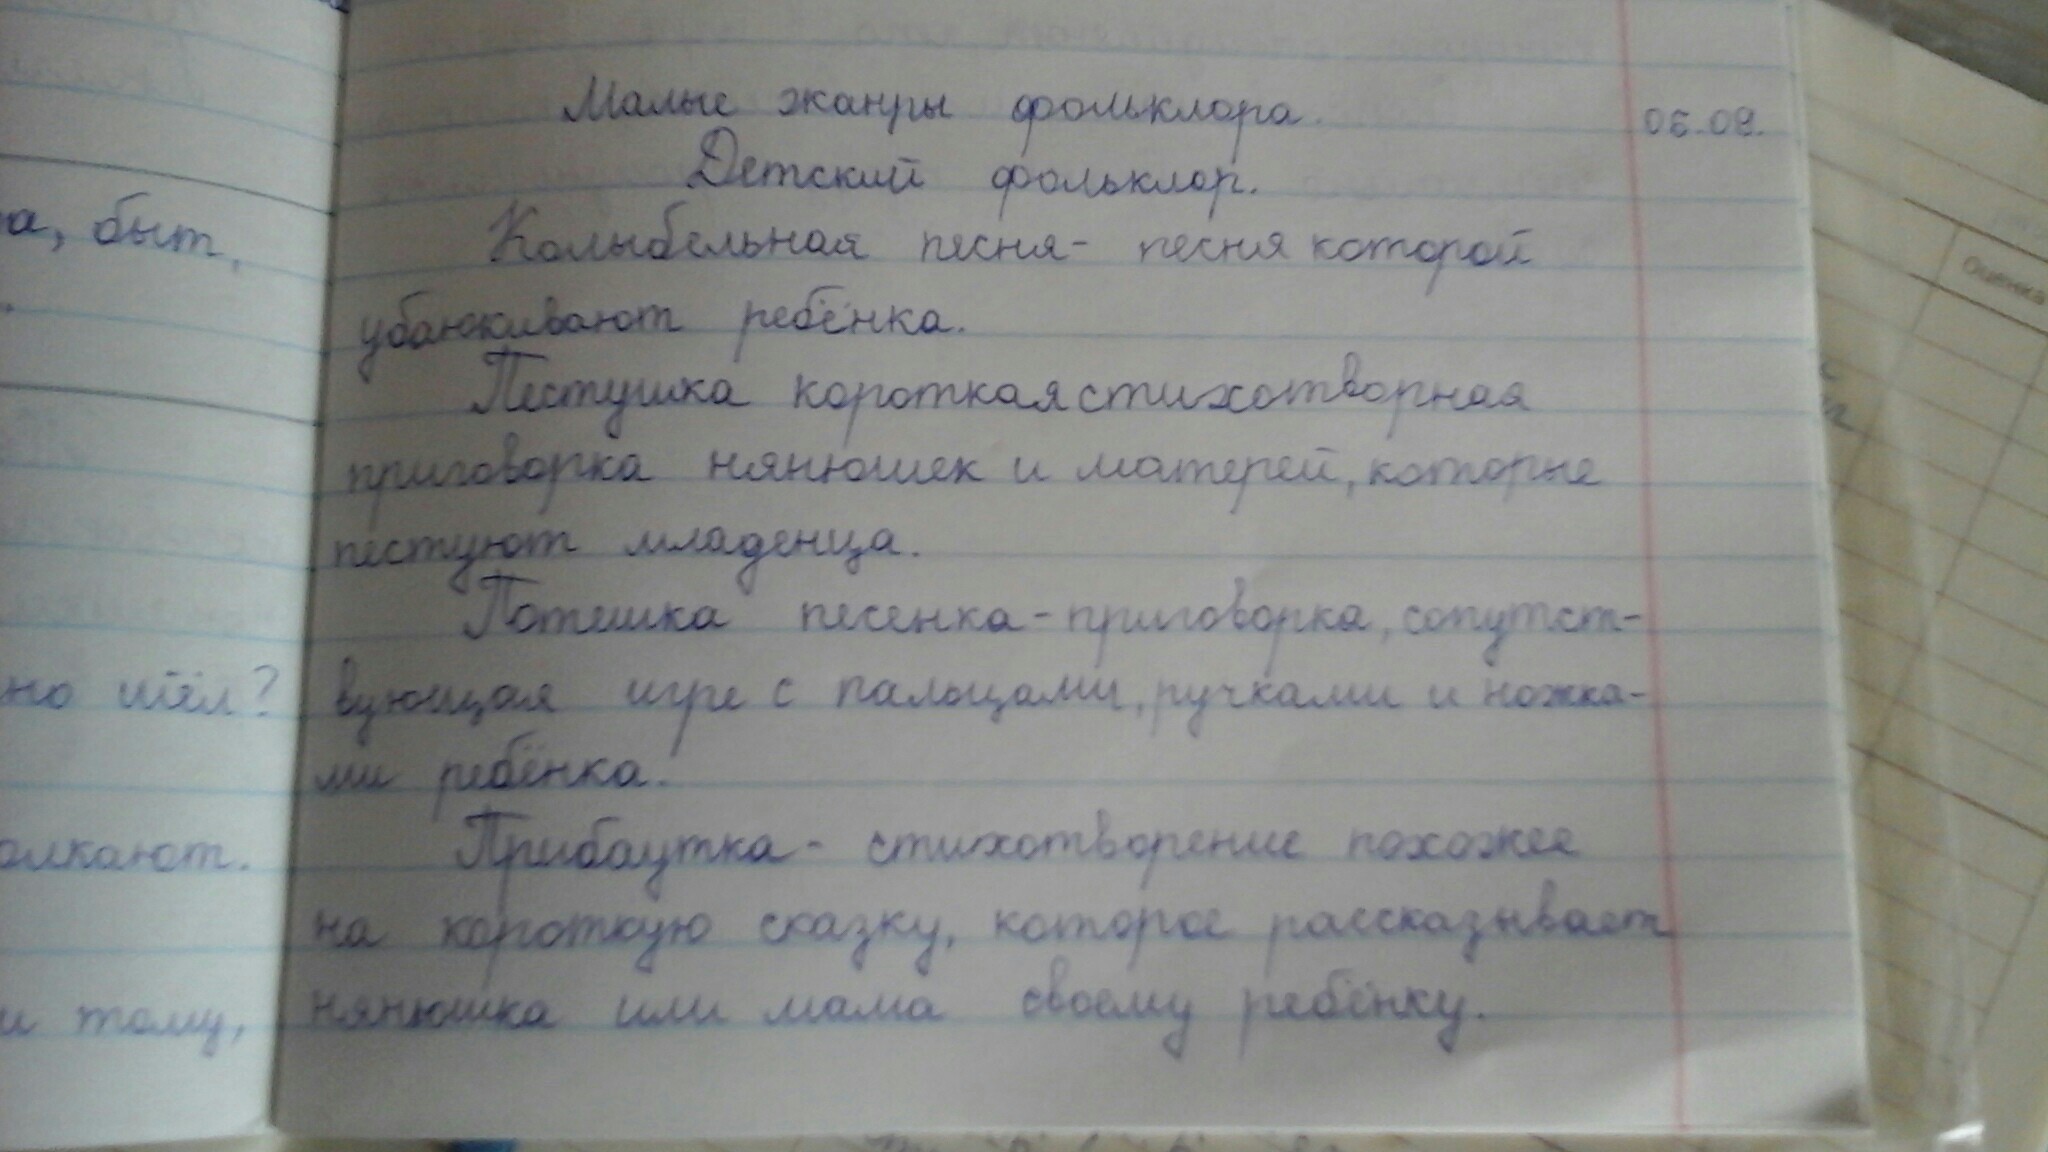 Малые жанры фольклора. 06.09.
Детский фольклор.
Колыбельная песня- песня которой
убаюкивают ребёнка.
Пестушка короткая стихотворная
приговорка нянюшек и матерей, которые
пестуют младенца.
Потешка песенка-приговорка, сопутст-
вующая игре с пальцами, ручками и ножка-
ми ребёнка.
Прибаутка- стихотворение похожее
на короткую сказку, которое рассказывает
нянюшка или мама своему ребёнку.
а, быт,
но шёл?
олкают.
и тому,
Оценка